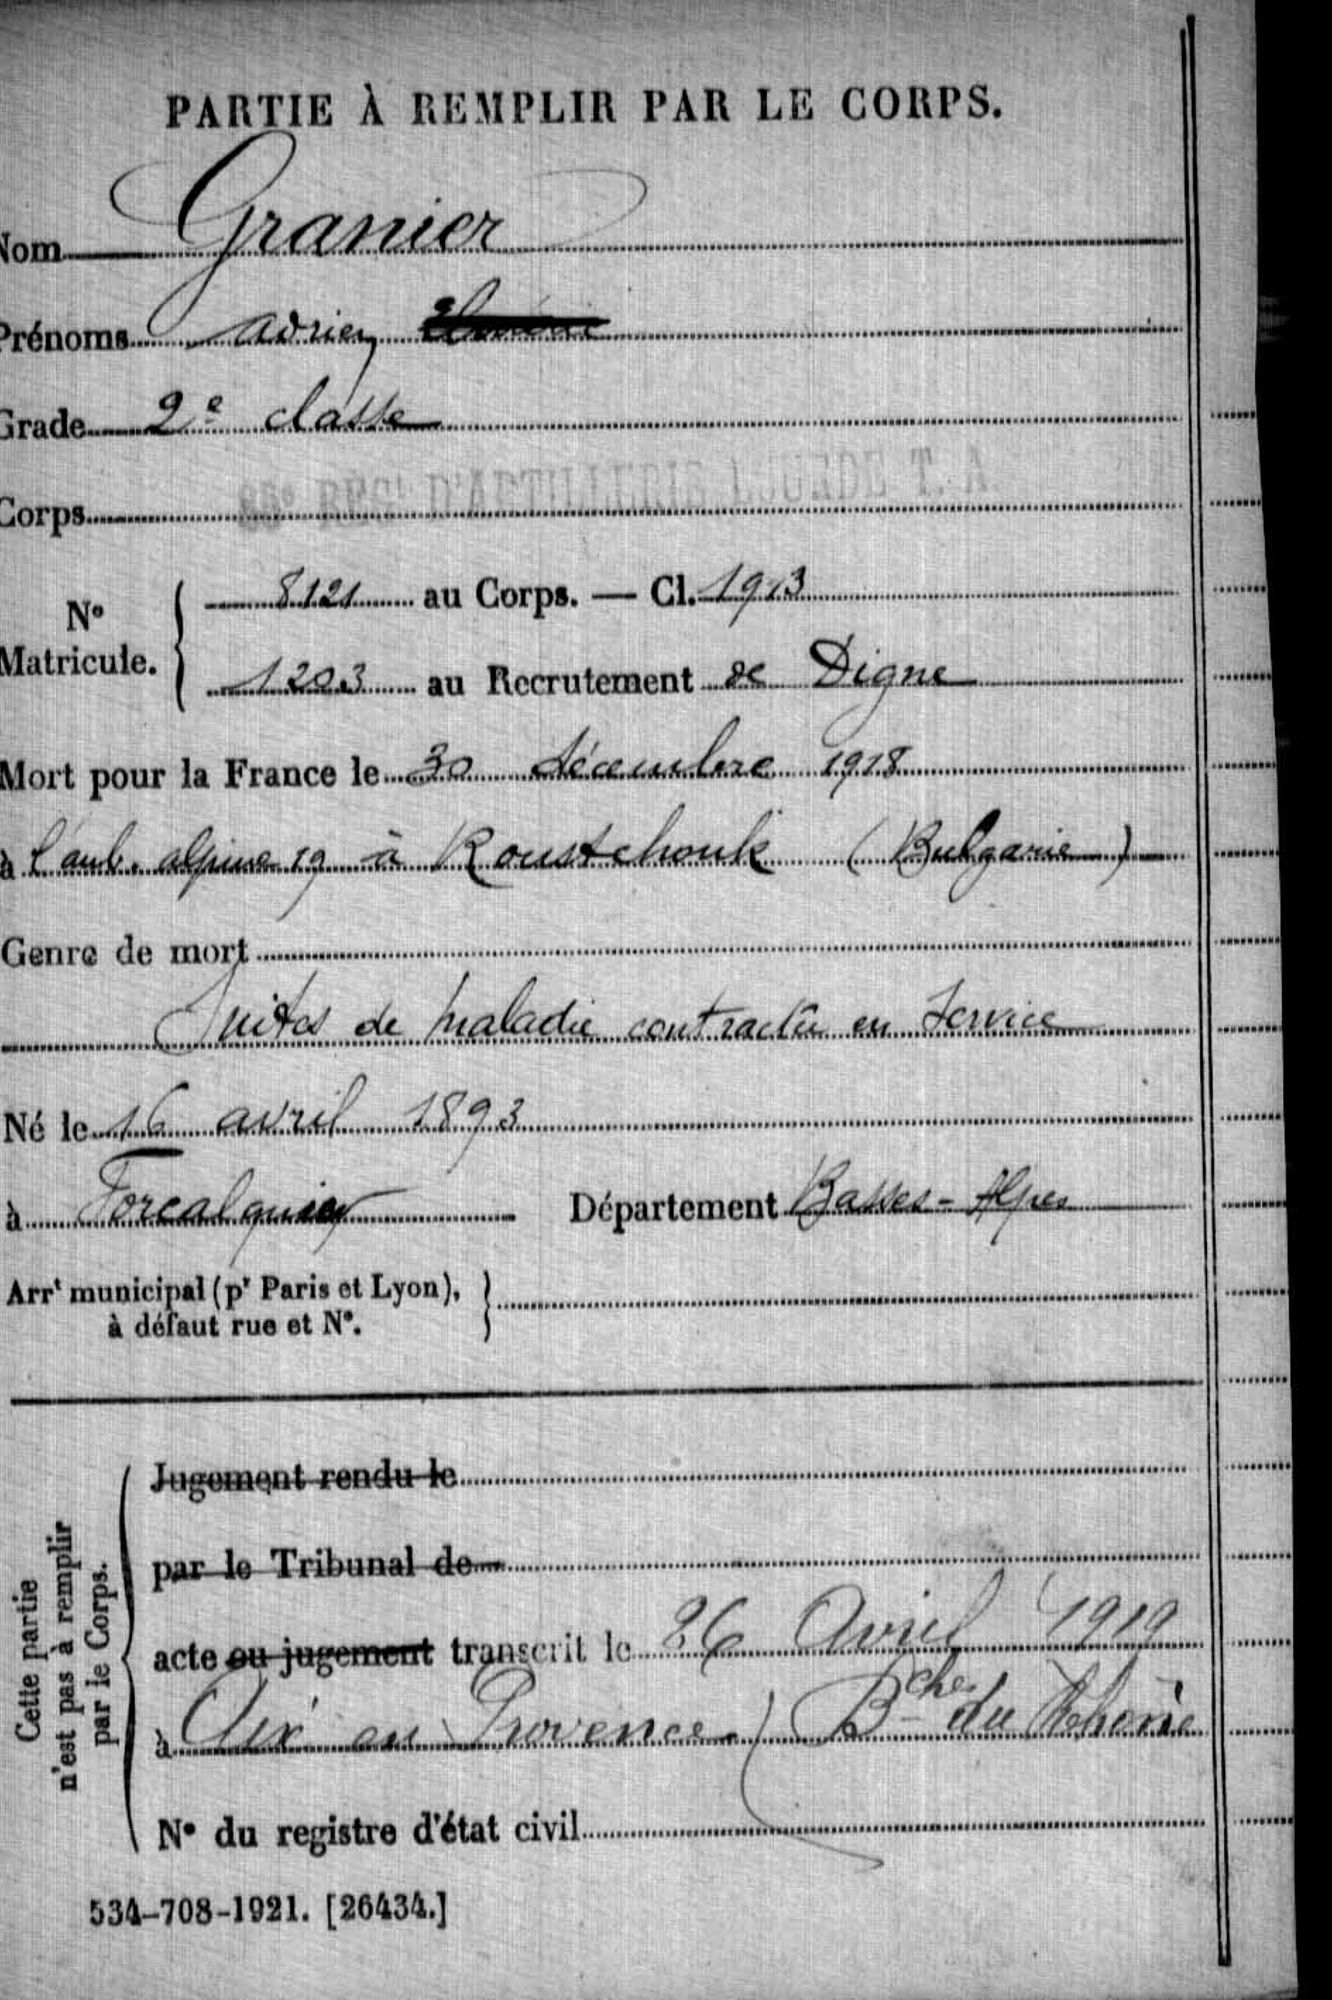 PARTIE À REMPLIR PAR LE CORPS.
Nom Granier
Prénoms Adrien
Grade 2e classe
Corps RÉGt D'ARTILLERIE LOURDE T. A
No Matricule. 8121 au Corps. — Cl. 1913
1203 au Recrutement de Digne
Mort pour la France le 30 décembre 1918
à l'amb. alpine 19 à Roustchouk (Bulgarie)
Genre de mort
Suites de maladie contractée en Service
Né le 16 avril 1893
à Forcalquier Département Basses-Alpes
Arrt municipal (pr Paris et Lyon),
à défaut rue et N°.
Cette partie
n'est pas à remplir
par le Corps.
Jugement rendu le
par le Tribunal de
acte ou jugement transcrit le 26 Avril 1919
à Aix en Provence (Bches du Rhône
N° du registre d'état civil
534-708-1921. [26434.]